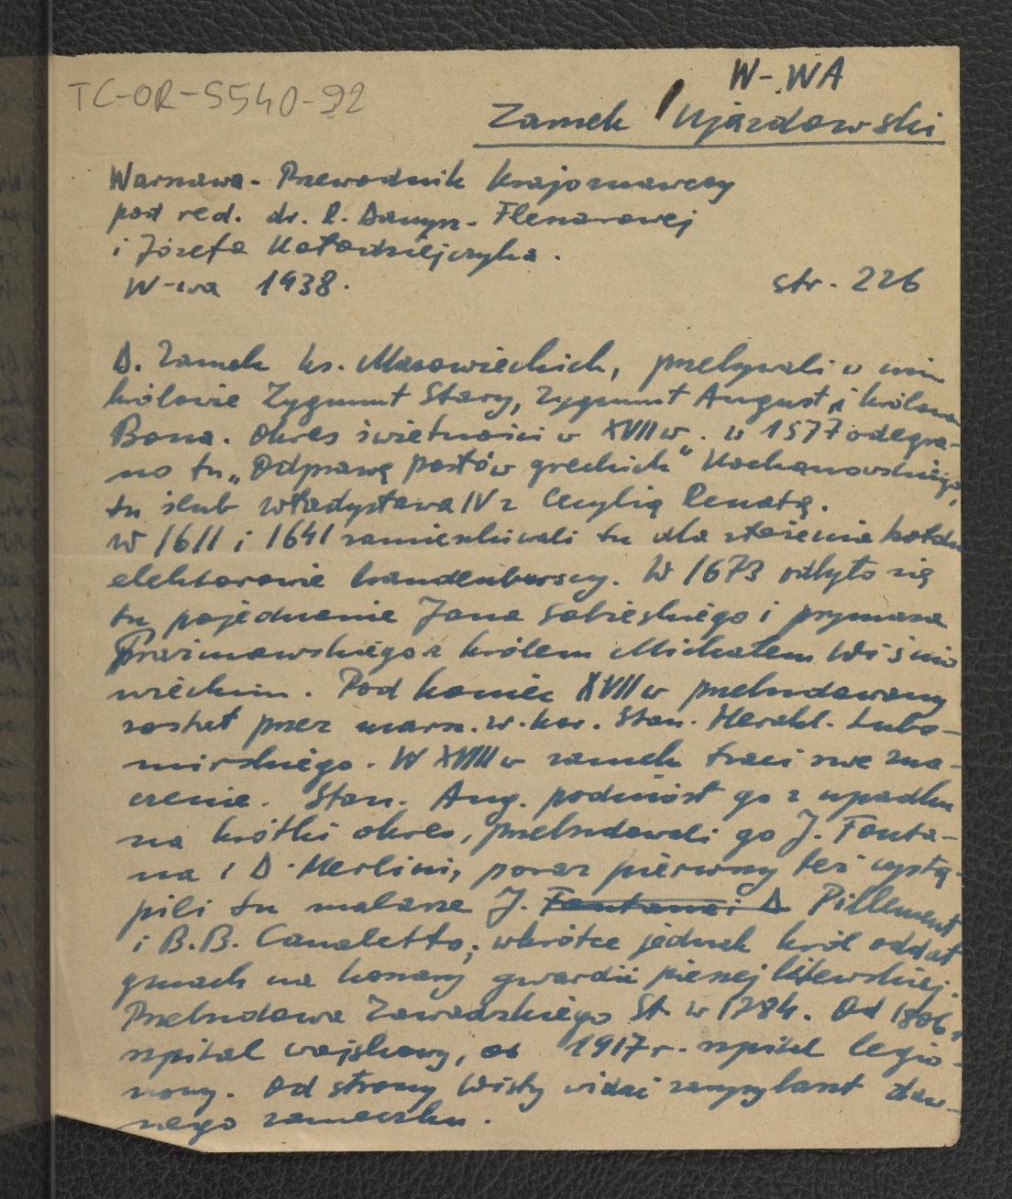 TC-OR-S540-92
W-WA
Zamek Ujazdowski
Warszawa - Przewodnik krajoznawczy
pod red. dr. R. Danysz-Fleszarowej
i Józefa Kołodziejczyka.
W-wa 1938. str. 226
D. Zamek ks. Mazowieckich, przebywali w nim
królowie Zygmunt Stary, Zygmunt August i królowa
Bona. Okres świetności w XVII w. w 1577 odegra-
no tu „Odprawę posłów greckich" Kochanowskiego,
tu ślub Władysława IV z Cecylią Renatą.
W 1611 i 1641 zamieszkiwali tu dla złożenia hołdu
elektorowie brandenburscy. W 1673 odbyło się
tu pojednanie Jana Sobieskiego i prymasa
Prażmowskiego z królem Michałem Wiśnio
wieckim. Pod koniec XVII w przebudowany
został przez marsz. w. kor. Stan. Herakl. Lubo-
mirskiego. W XVIII w zamek traci swe zna-
czenie. Stan. Aug. podniósł go z upadku
na krótki okres, przebudowali go J. Fonta-
na i D. Merlini, poraz pierwszy też wystą-
pili tu malarze J. Fontana i D Pillement
i B.B. Canaletto; wkrótce jednak król oddał
gmach na koszary gwardii pieszej litewskiej.
Przebudowa Zawadzkiego St. w 1784. Od 1806,
szpital wojskowy, od 1917 r. szpital legio-
nowy. Od strony Wisły widać zarys baszt daw-
nego zameczku.